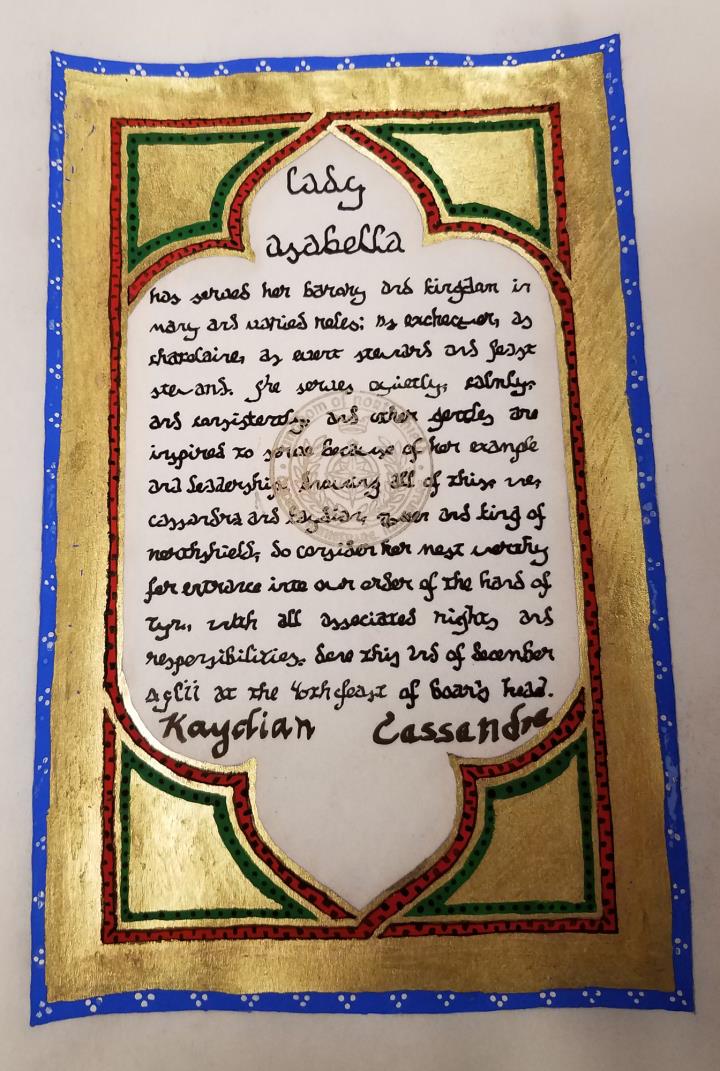 lady
asabella
has served her barony and kingdom in
many and varied roles; as exchequer, as
chatelaine, as event steward and feast
steward. She serves quietly, calmly,
and consistently, and other gentles are
inspired to serve because of her example
and leadership. knowing all of this, we,
cassandra and kaydian, queen and king of
northshield, do consider her most worthy
for entrance into our order of the hand of
tyr, with all associated rights and
responsibilities. done this 2nd of december
at the 40th feast of boar's head.
Kaydian Cassandra